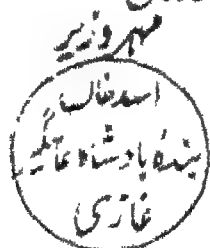 مہر وزیر
اسد خان
بندۂ بادشاہ عالمگیر
غازی